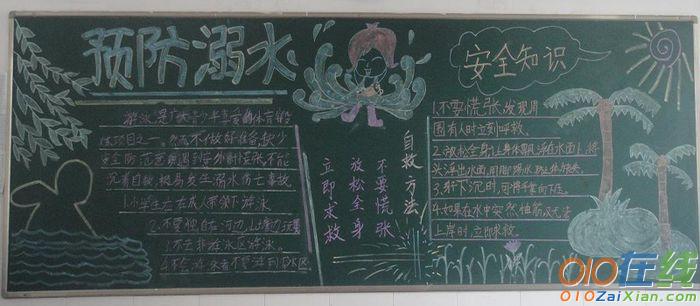 预防溺水
游泳是广大青少年喜爱的体育锻
炼项目之一。然而不做好准备,缺少
安全防范意识,遇到意外时慌张,不能
沉着自救,极易发生溺水伤亡事故
1.小学生应在成人带领下游泳
2.不要独自在河边,山塘边玩耍
3.不去非游泳区游泳。
4.不会游泳者不要游到深水区
自救方法
不要慌张
放松全身
立即求救
安全知识
1.不要慌张发现周
围有人时立刻呼救。
2.放松全身让身体飘浮在水面上,将
头浮出水面
3.身体下沉时,可将手掌向下压。
4.如果在水中突然抽筋,又无法
上岸时,立即求救。
010在线
010ZaiXian.com